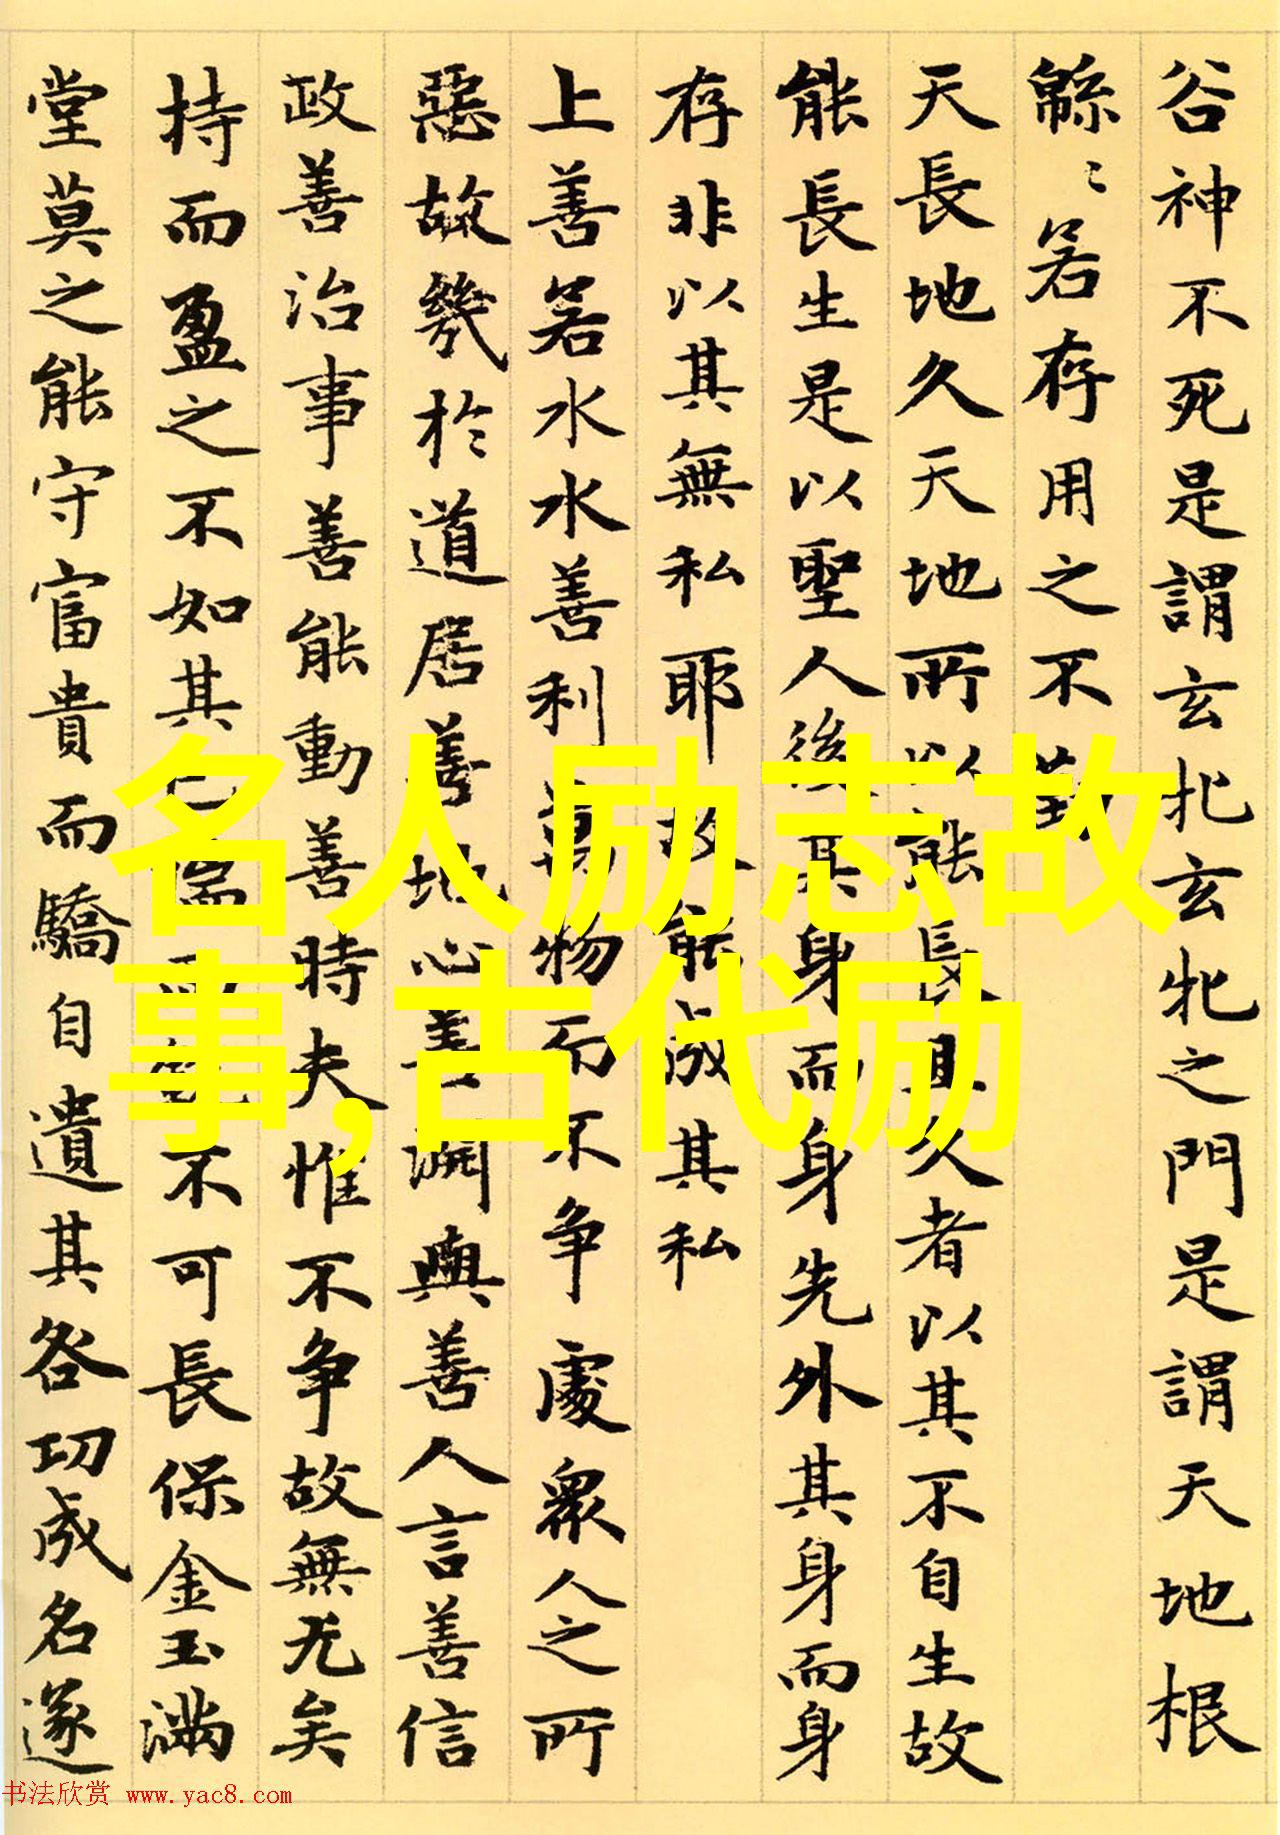 谷神不死是謂玄牝玄牝之門是謂天地根
緜〻若存用之不勤
天長地久天地所以能長且久者以其不自生故
能長生是以聖人後其身而身先外其身而身
存非以其無私耶故能成其私
上善若水水善利萬物而不争處衆人之所
惡故幾於道居善地心善淵與善人言善信
政善治事善能動善時夫惟不争故無尤矣
持而盈之不如其已揣而銳不可長保金玉滿
堂莫之能守富貴而驕自遺其咎功成名遂
名人励志故
事,古代励
书法欣赏 www.yac8.com